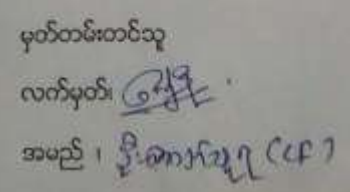 မှတ်တမ်းတင်သူ
လက်မှတ်၊
အမည် ၊ ဦးအောင်သူရ (CF)